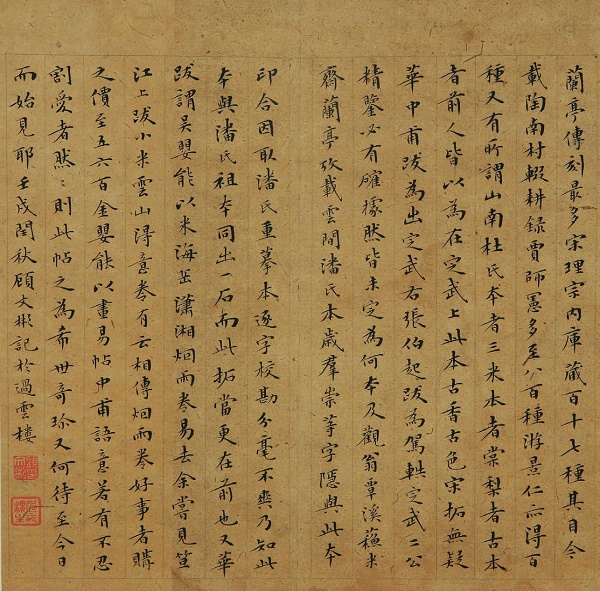 蘭亭傳刻最多宋理宗內庫蔵百十七種其目今
載陶南村輟耕録賈師憲多至八百種游景仁亦得百
種又有所謂山南杜氏本者三米本者棠梨者古本
者前人皆以為在定武上此本古香古色宋拓無疑
華中甫跋為出定武右張伯起跋為駕軼定武二公
精鑒必有確據然皆未定為何本及觀翁覃溪蘇米
齋蘭亭攷載雲間潘氏本歲羣崇等字隱與此本
印合因取潘氏重摹本逐字校勘分毫不爽乃知此
本與潘氏祖本同出一石而此拓當更在前也又華
跋謂吴嬰能以米海岳瀟湘烟雨卷易去余嘗見笪
江上跋小米雲山得意卷有云相傳烟雨卷好事者購
之價至五六百金嬰能以畫易帖中甫語意若有不忍
割愛者然〻則此帖之為希世竒珍又何待至今日
而始見耶壬戌閏秋顧文彬記於過雲樓